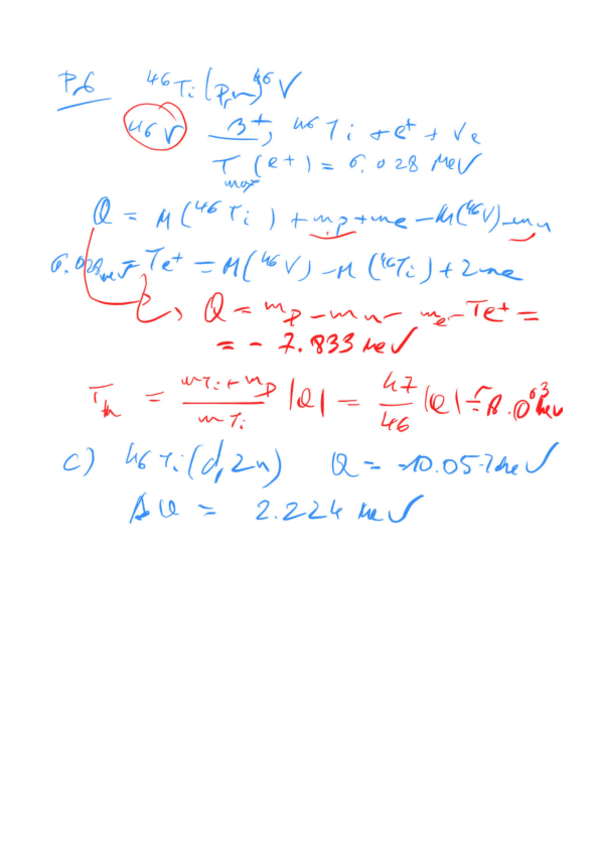 P.6 ⁴⁶Ti(p,n)⁴⁶V
⁴⁶V β⁺→ ⁴⁶Ti + e⁺ + νe
Tmax(e⁺) = 6.028 MeV
Q = M(⁴⁶Ti) + mp + me - M(⁴⁶V) - mn
6.028 MeV = Te⁺ = M(⁴⁶V) - M(⁴⁶Ti) + 2me
→ Q = mp - mn - me - Te⁺ =
= - 7.833 MeV
Th = (mTi + mp)/(mTi) |Q| = 47/46 |Q| = 8.003 MeV
c) ⁴⁶Ti(d,2n) Q = -10.057 MeV
ΔQ = 2.224 MeV